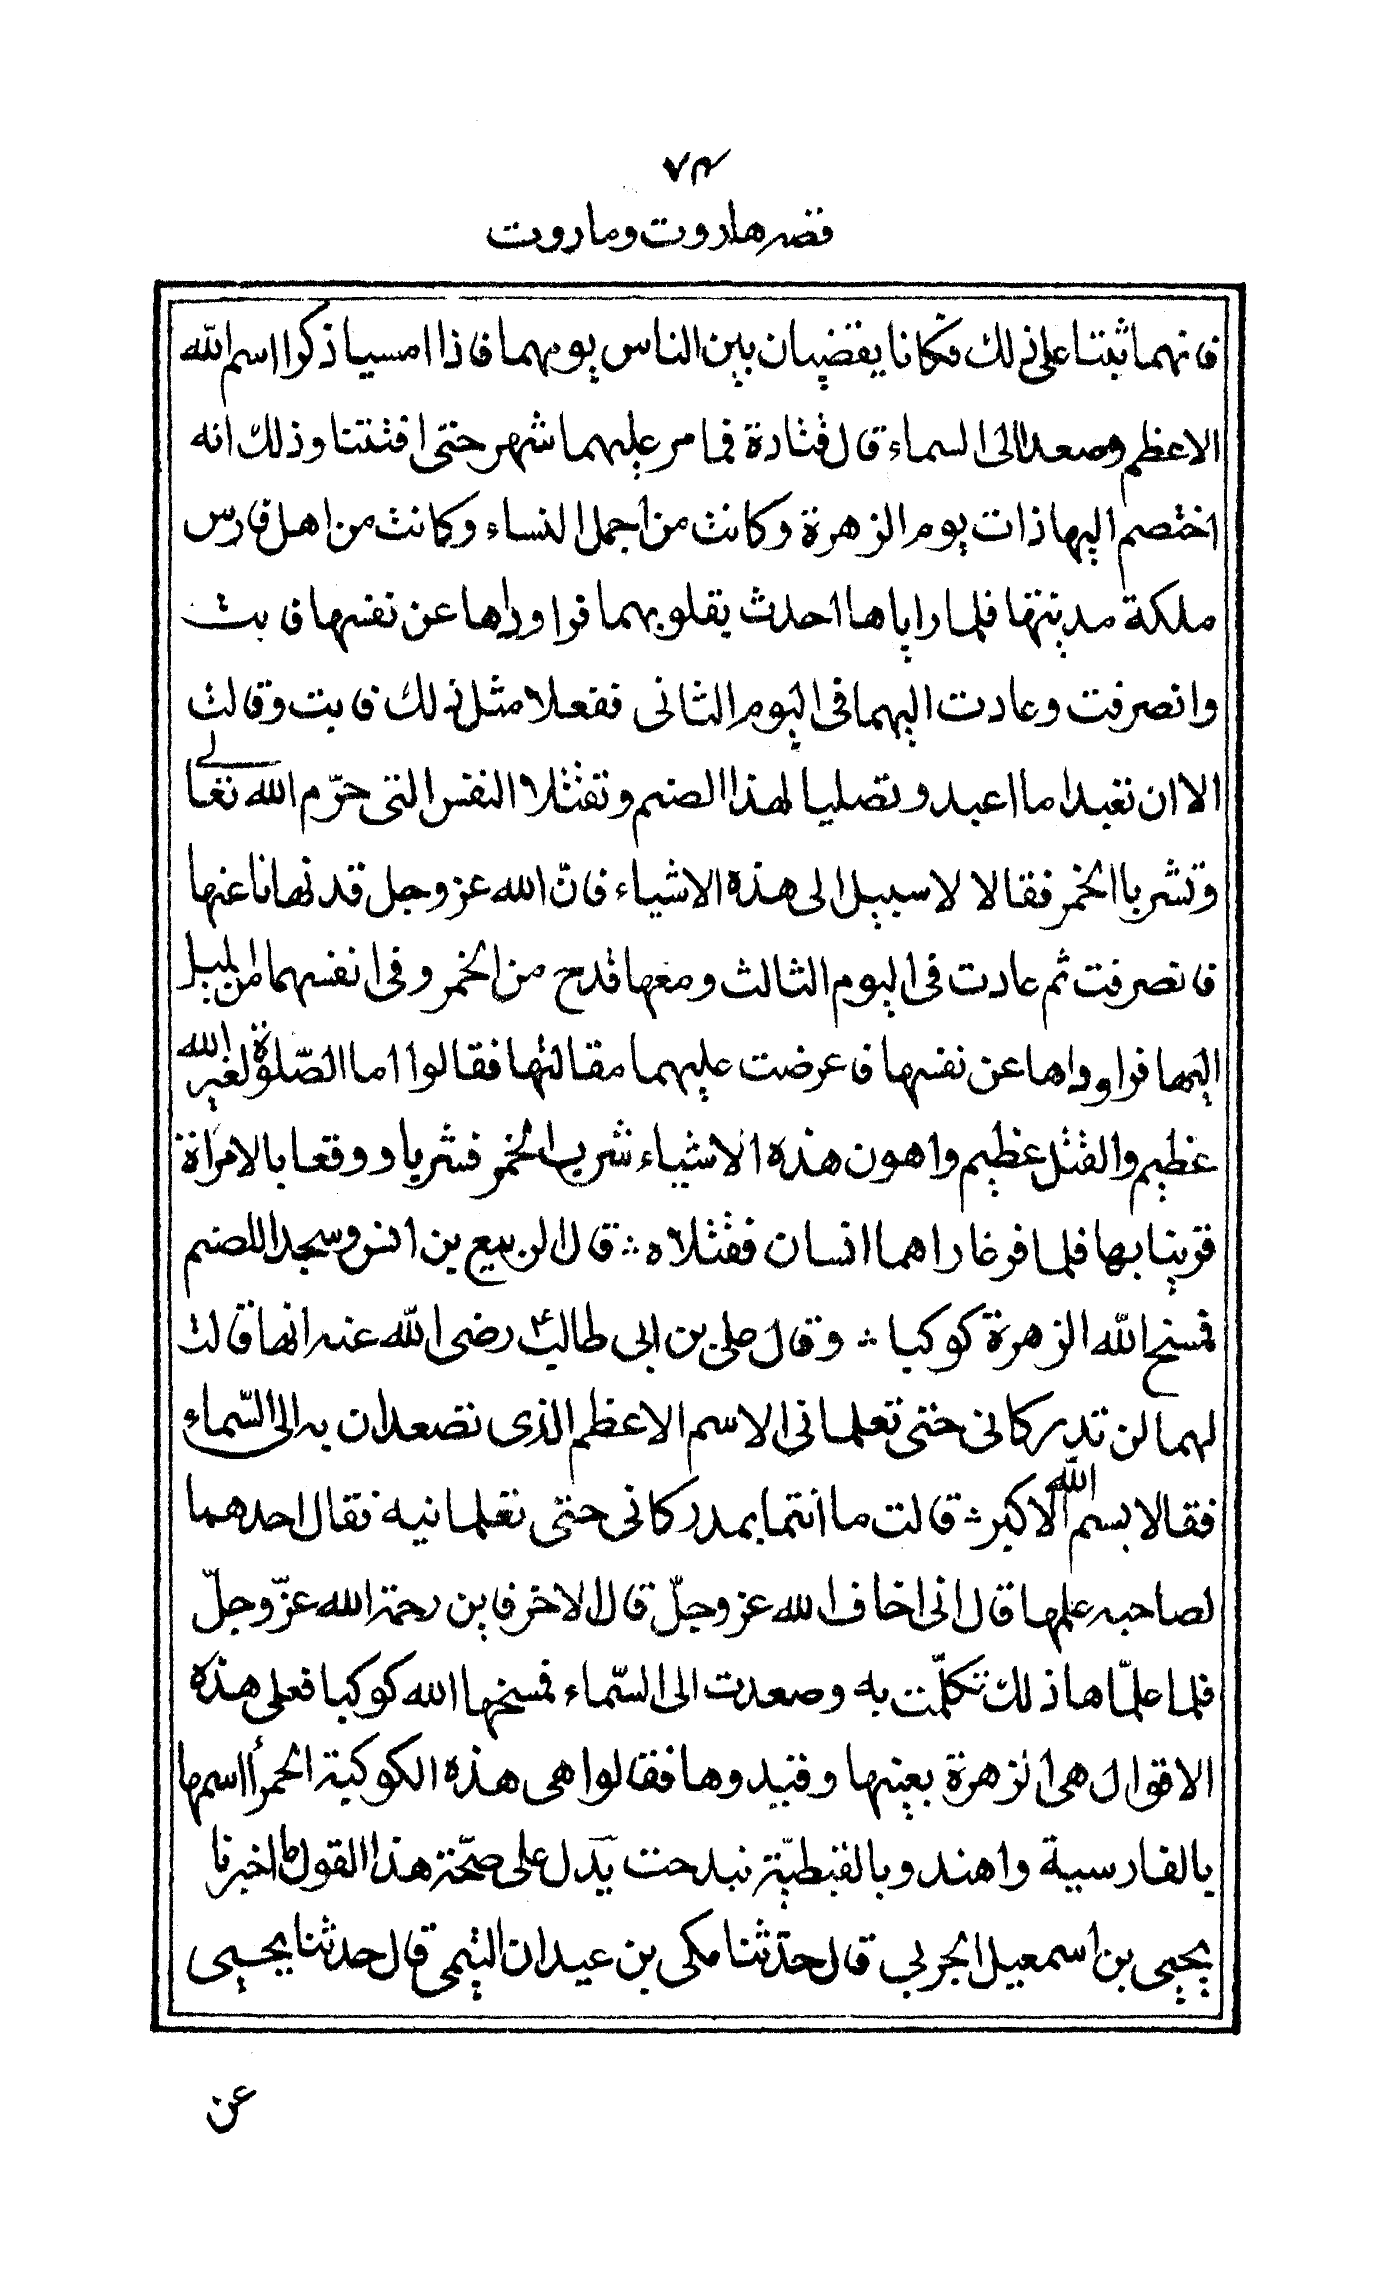 ٧٤
قصه هاروت وماروت
فانهما ثبتنا على ذلك فكانا يقضيان بين الناس يومهما فاذا امسيا ذكروا اسم الله
الاعظم وصعدا الى السماء قال قتادة فما مر عليهما شهر حتى افتتنا وذلك انه
اختصم اليها ذات يوم الزهرة وكانت من اجمل النساء وكانت من اهل فارس
ملكة مدينتها فلما راياها احدث بقلوبهما فراوداها عن نفسها فابت
وانصرفت وعادت اليهما فى اليوم الثانى ففعلا مثل ذلك فابت وقالت
الا ان تعبدا ما اعبد وتصليا لهذا الصنم وتقتلا النفس التى حرّم الله تعالى
وتشربا الخمر فقالا لا سبيل الى هذه الاشياء فانّ الله عز وجل قد نهانا عنها
فانصرفت ثم عادت فى اليوم الثالث ومعها قدح من الخمر وفى انفسهما من الميل
اليها فراوداها عن نفسها فاعرضت عليهما مقالتها فقالوا اما الصّلوة لغير الله
عظيم والقتل عظيم واهون هذه الاشياء شرب الخمر فشربا ووقعا بالامراة
فزينا بها فلما فرغا راهما انسان فقتلاه ∴ قال الربيع بن انس وسجدا للصنم
فمسخ الله الزهرة كوكبا ∴ وقال على بن ابى طالب رضى الله عنه انها قالت
لهما لن تدركانى حتى تعلمانى الاسم الاعظم الذى تصعدان به الى السّماء
فقالا بسم الله الاكبر ∴ قالت ما انتما بمدركانى حتى تعلمانيه فقال احدهما
لصاحبه علمها قال انى اخاف الله عز وجلّ قال الاخر فاين رحمة الله عزّ وجلّ
فلما علمّاها ذلك تكلّمت به وصعدت الى السّماء فمسخها الله كوكبا فعلى هذه
الاقوال هى الزهرة بعينها وقيدوها فقالوا هى هذه الكوكبة الحمرأ اسمها
بالفارسية واهند وبالقبطيّة نبدحت يدل على صحّة هذا القول ما اخبرنا
يحيى بن اسمعيل الحربى قال حدّثنا مكى بن عبدان التيمى قال حدثنا يحيى
عن